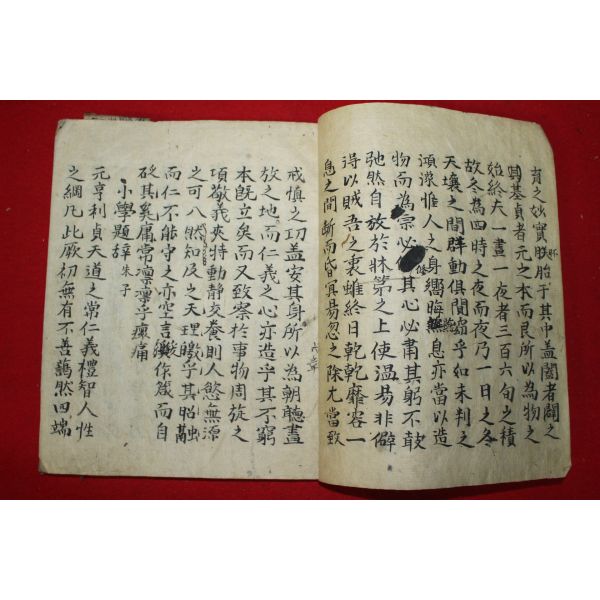 育之如實胚胎于其中盖闔者闢之
基貞者元之本而艮所以為物之
始終夫一晝一夜者三百六旬之積
故冬為四時之夜而夜乃一日之冬
天壤之間群動俱閴窈乎如未判之
鴻濛惟人之身嚮晦息亦當以造
物而為宗必其心必肅其躬不敢
弛然自放於牀笫之上使慢易非僻
得以賊吾之衷雖終日乾乾靡容一
息之間断而昏冥易忽之際尤當致
戒慎之功盖安其身所以為朝聽晝
放之地而仁義之心亦造乎其不窮
本既立矣而又致察於事物周旋之
項敬義夾特動静交養則人慾無源
之可入然知及之天理皦乎其昭融
而仁不能守之亦空言作箴而自
砭其奚庸常凛凛乎瘝痛
小學題辭 朱子
元亨利貞天道之常仁義禮智人性
之綱凡此厥初無有不善藹然四端